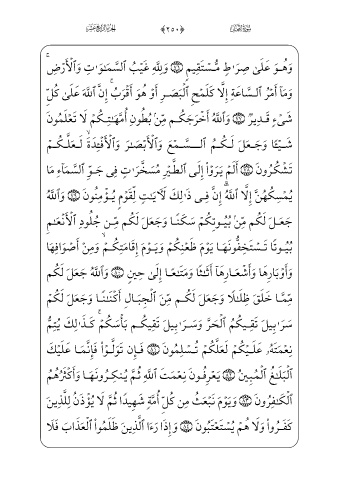 سُورَةُ النَّحْلِ ﴿٢٥٠﴾ الجزء الرابع عشر
وَهُوَ عَلَىٰ صِرَٰطٍ مُّسْتَقِيمٍ ٧٦ وَلِلَّهِ غَيْبُ ٱلسَّمَٰوَٰتِ وَٱلْأَرْضِ ۚ
وَمَآ أَمْرُ ٱلسَّاعَةِ إِلَّا كَلَمْحِ ٱلْبَصَرِ أَوْ هُوَ أَقْرَبُ ۚ إِنَّ ٱللَّهَ عَلَىٰ كُلِّ
شَىْءٍ قَدِيرٌ ٧٧ وَٱللَّهُ أَخْرَجَكُم مِّنۢ بُطُونِ أُمَّهَٰتِكُمْ لَا تَعْلَمُونَ
شَيْـًٔا وَجَعَلَ لَكُمُ ٱلسَّمْعَ وَٱلْأَبْصَٰرَ وَٱلْأَفْـِٔدَةَ ۙ لَعَلَّكُمْ
تَشْكُرُونَ ٧٨ أَلَمْ يَرَوْا۟ إِلَى ٱلطَّيْرِ مُسَخَّرَٰتٍ فِى جَوِّ ٱلسَّمَآءِ مَا
يُمْسِكُهُنَّ إِلَّا ٱللَّهُ ۗ إِنَّ فِى ذَٰلِكَ لَـَٔايَٰتٍ لِّقَوْمٍ يُؤْمِنُونَ ٧٩ وَٱللَّهُ
جَعَلَ لَكُم مِّنۢ بُيُوتِكُمْ سَكَنًا وَجَعَلَ لَكُم مِّن جُلُودِ ٱلْأَنْعَٰمِ
بُيُوتًا تَسْتَخِفُّونَهَا يَوْمَ ظَعْنِكُمْ وَيَوْمَ إِقَامَتِكُمْ ۙ وَمِنْ أَصْوَافِهَا
وَأَوْبَارِهَا وَأَشْعَارِهَآ أَثَٰثًا وَمَتَٰعًا إِلَىٰ حِينٍ ٨٠ وَٱللَّهُ جَعَلَ لَكُم
مِّمَّا خَلَقَ ظِلَٰلًا وَجَعَلَ لَكُم مِّنَ ٱلْجِبَالِ أَكْنَٰنًا وَجَعَلَ لَكُمْ
سَرَٰبِيلَ تَقِيكُمُ ٱلْحَرَّ وَسَرَٰبِيلَ تَقِيكُم بَأْسَكُمْ ۚ كَذَٰلِكَ يُتِمُّ
نِعْمَتَهُۥ عَلَيْكُمْ لَعَلَّكُمْ تُسْلِمُونَ ٨١ فَإِن تَوَلَّوْا۟ فَإِنَّمَا عَلَيْكَ
ٱلْبَلَٰغُ ٱلْمُبِينُ ٨٢ يَعْرِفُونَ نِعْمَتَ ٱللَّهِ ثُمَّ يُنكِرُونَهَا وَأَكْثَرُهُمُ
ٱلْكَٰفِرُونَ ٨٣ وَيَوْمَ نَبْعَثُ مِن كُلِّ أُمَّةٍ شَهِيدًا ثُمَّ لَا يُؤْذَنُ لِلَّذِينَ
كَفَرُوا۟ وَلَا هُمْ يُسْتَعْتَبُونَ ٨٤ وَإِذَا رَءَا ٱلَّذِينَ ظَلَمُوا۟ ٱلْعَذَابَ فَلَا